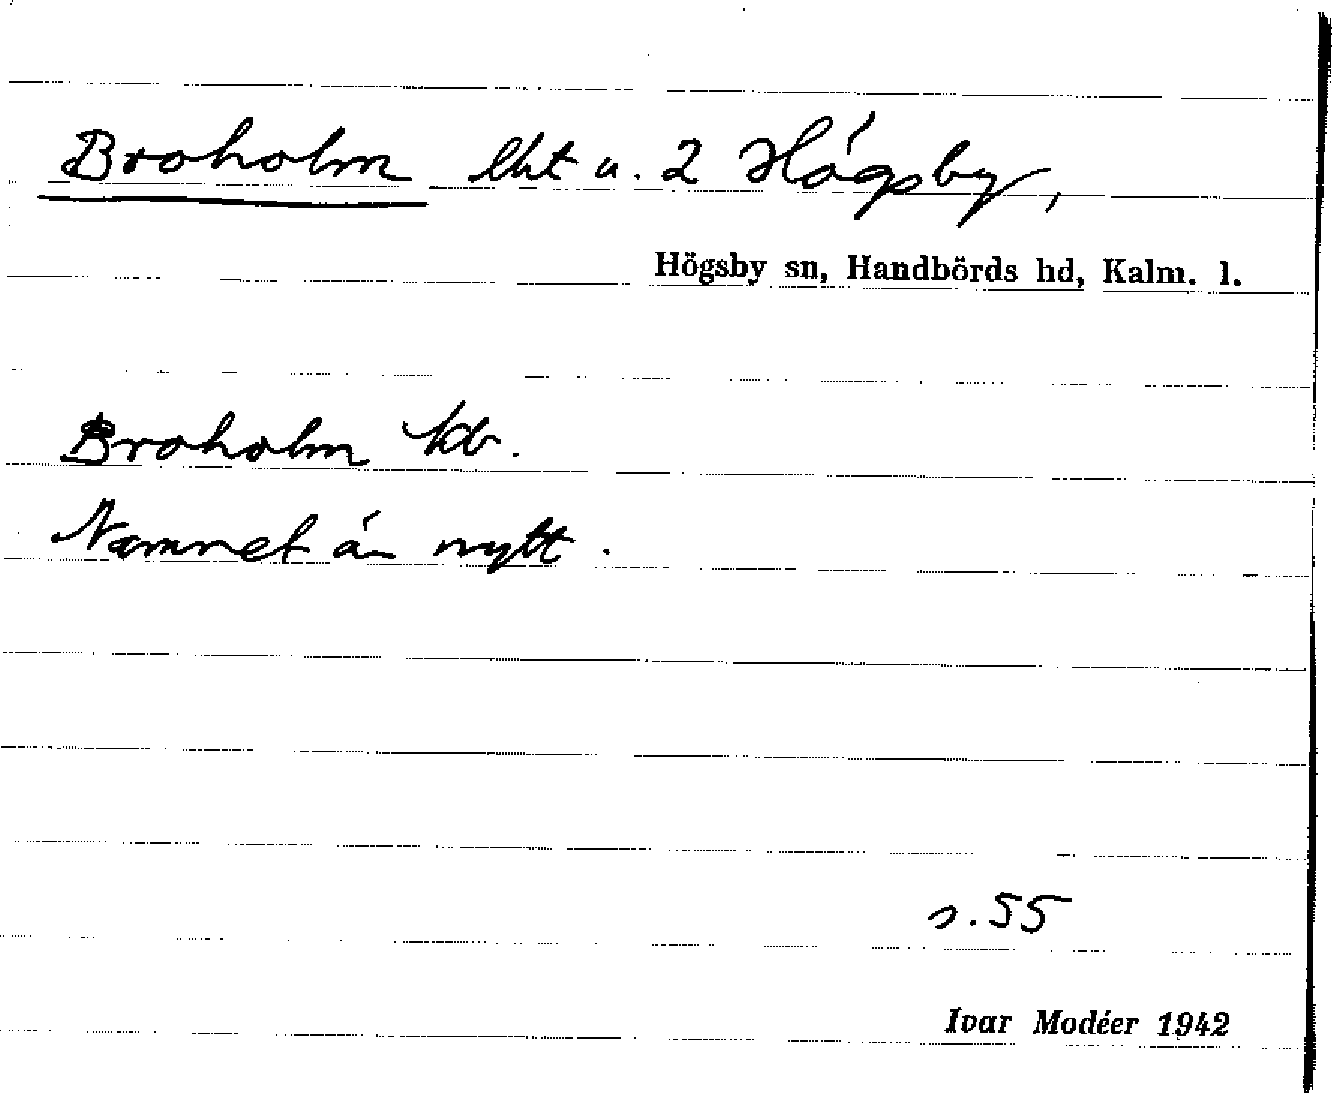 Broholm lht u. 2 Högsby,
Högsby sn, Handbörds hd, Kalm. l.
Broholm kb.
Namnet är nytt.
s. 55
Ivar Modéer 1942